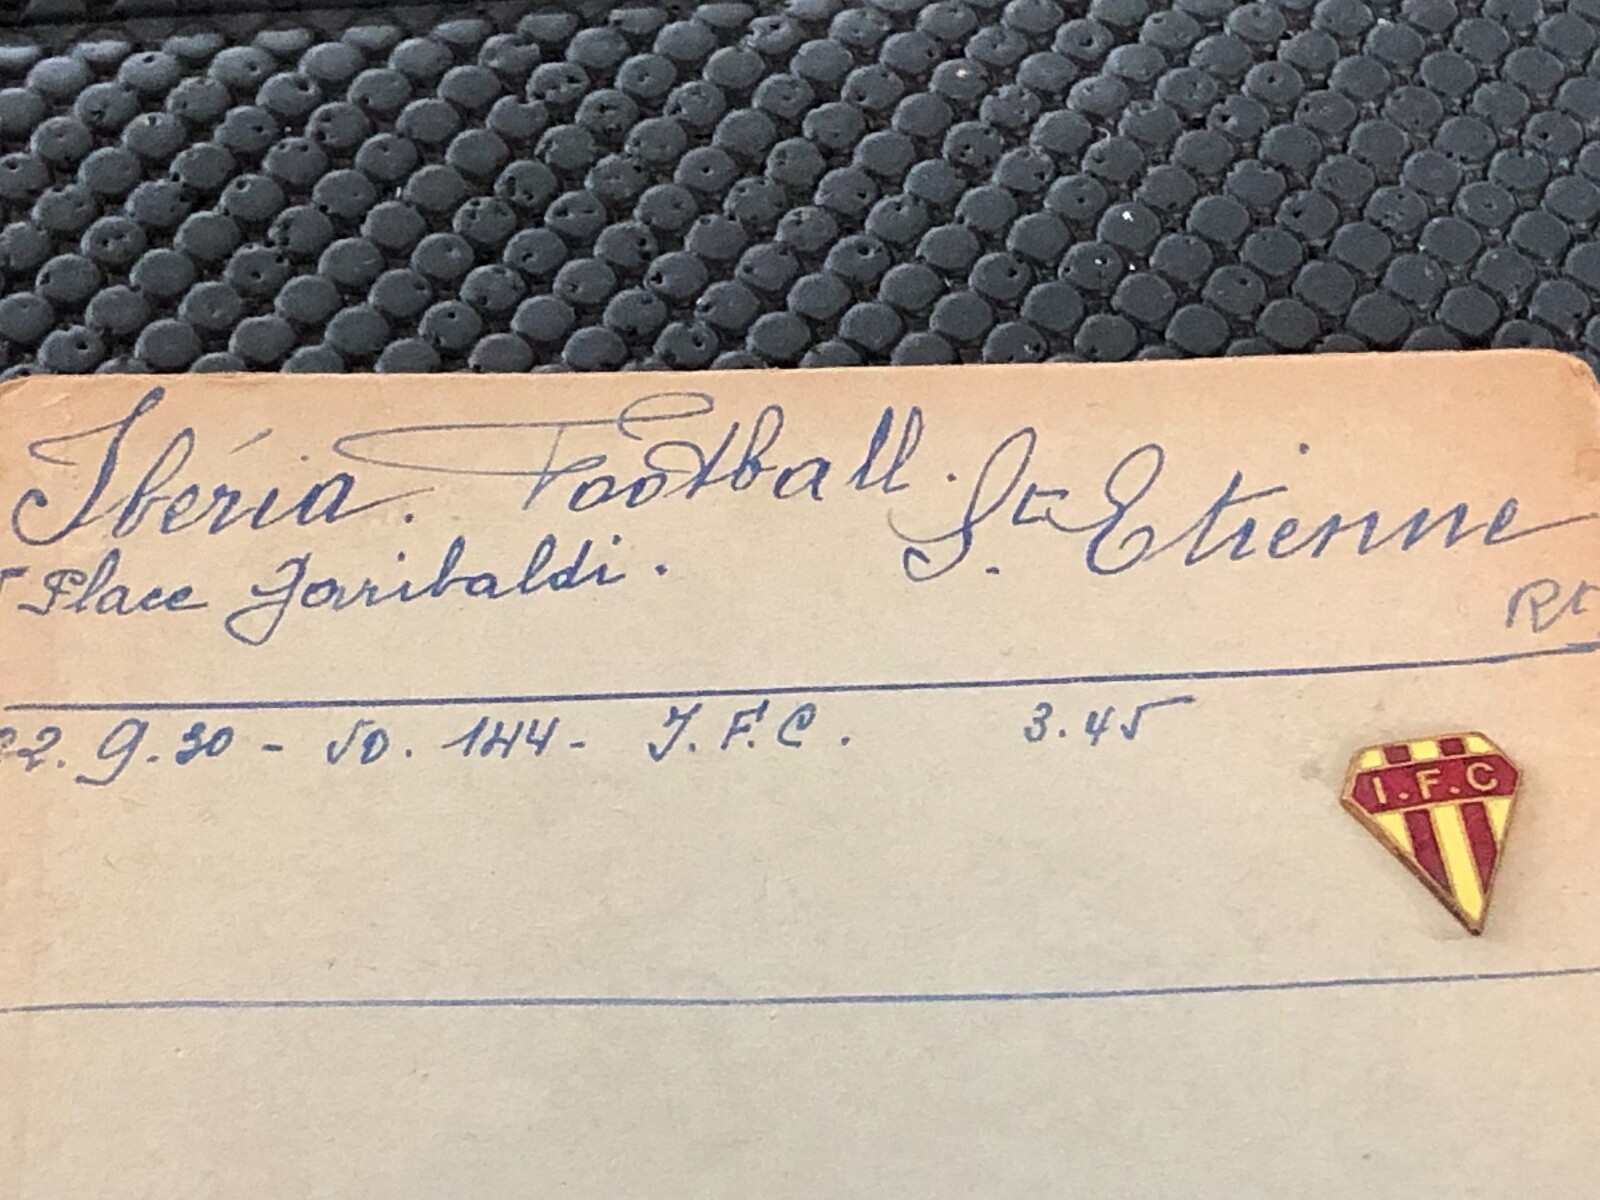 Ibéria. Football. St. Etienne
Place Garibaldi.
Rt
22. 9. 30 - 50. 144 - I. F. C. 3.45
I.F.C